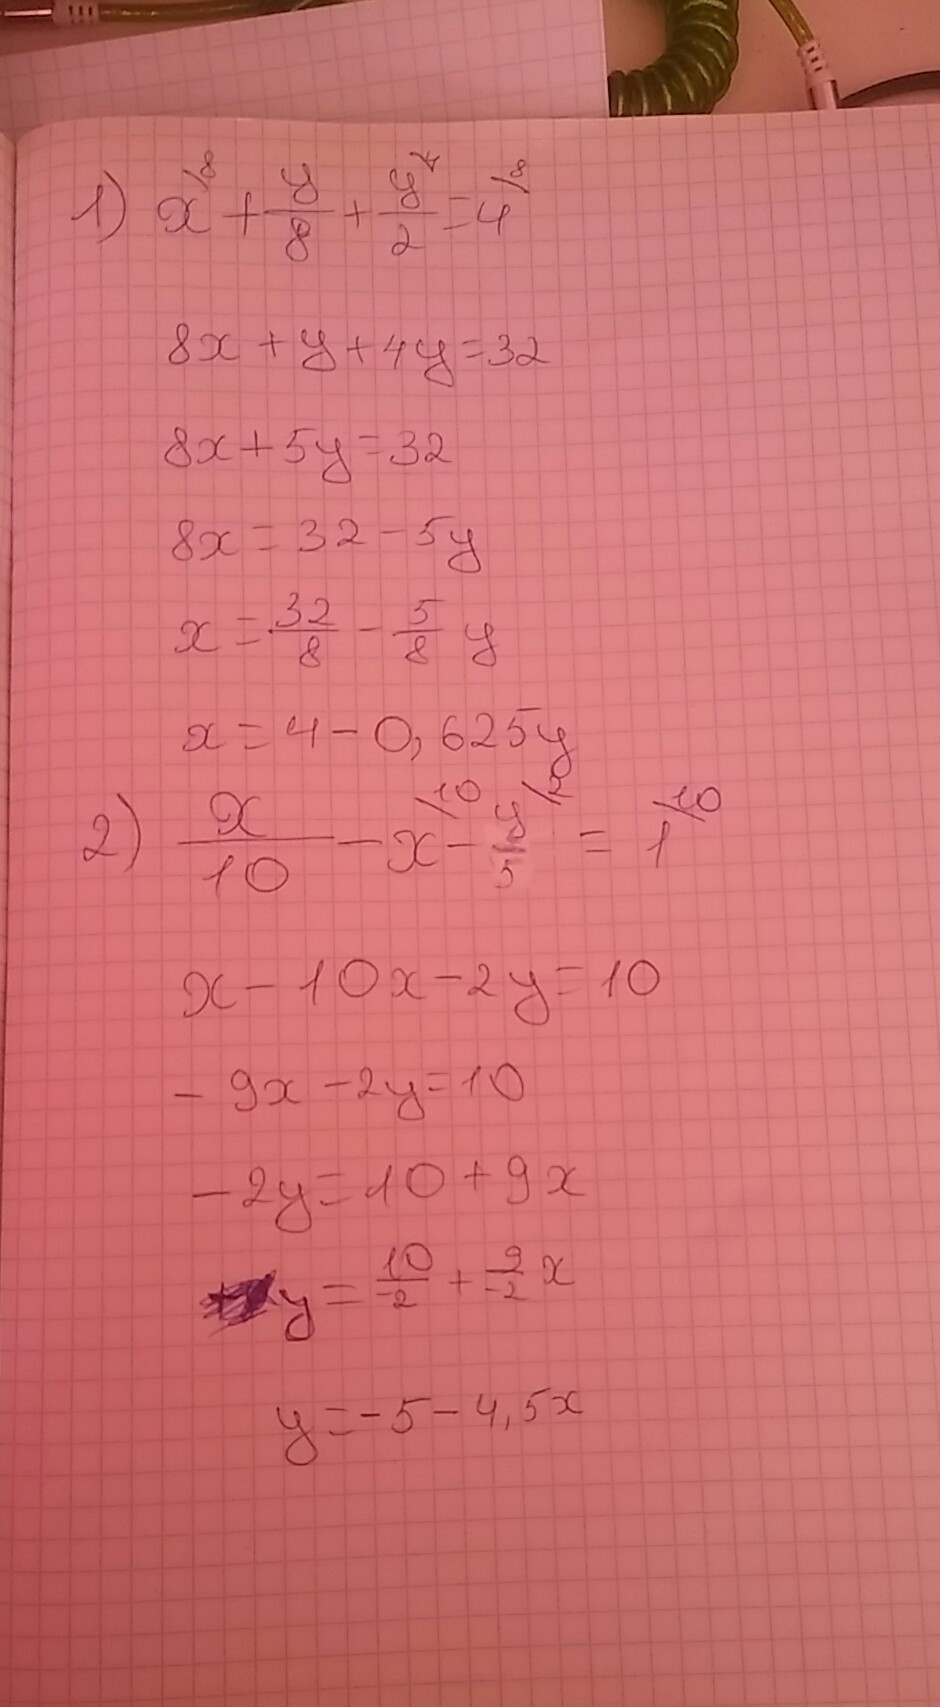 1) x^{/8} + y/8 + y/2^{/4} = 4^{/8}
8x + y + 4y = 32
8x + 5y = 32
8x = 32 - 5y
x = 32/8 - 5/8 y
x = 4 - 0,625y
2) x/10 - x^{/10} - y/5^{/2} = 1^{/10}
x - 10x - 2y = 10
- 9x - 2y = 10
- 2y = 10 + 9x
y = 10/-2 + 9/-2 x
y = -5 - 4,5x